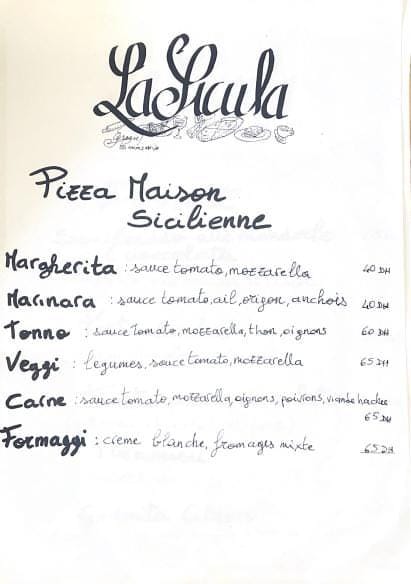 La Sicula
Pizza Maison
Sicilienne
Margherita : sauce tomato, mozzarella 40 DH
Marinara : sauce tomato, ail, origon, anchois 40 DH
Tonno : sauce tomato, mozzarella, thon, oignons 60 DH
Veggi : legumes, sauce tomato, mozzarella 65 DH
Carne : sauce tomato, mozzarella, oignons, poivrons, viande hachee
65 DH
Formaggi : creme blanche, fromages mixte 65 DH